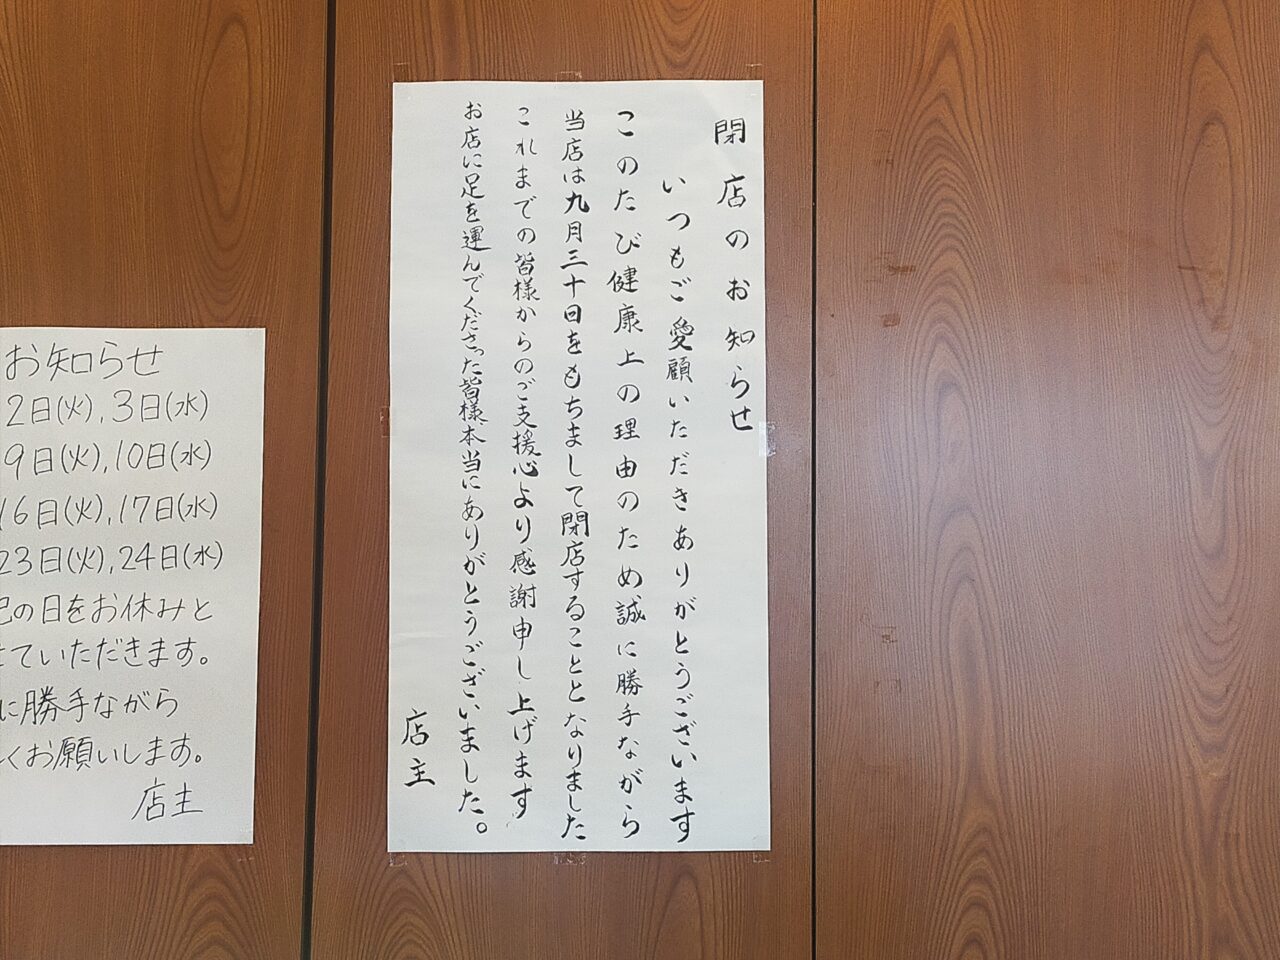 閉店のお知らせ
いつもご愛顧いただきありがとうございます
このたび健康上の理由のため誠に勝手ながら
当店は九月三十日をもちまして閉店することとなりました
これまでの皆様からのご支援心より感謝申し上げます
お店に足を運んでくださった皆様本当にありがとうございました。
店主
お知らせ
2日(火),3日(水)
9日(火),10日(水)
16日(火),17日(水)
23日(火),24日(水)
記の日をお休みと
せていただきます。
に勝手ながら
くお願いします。
店主